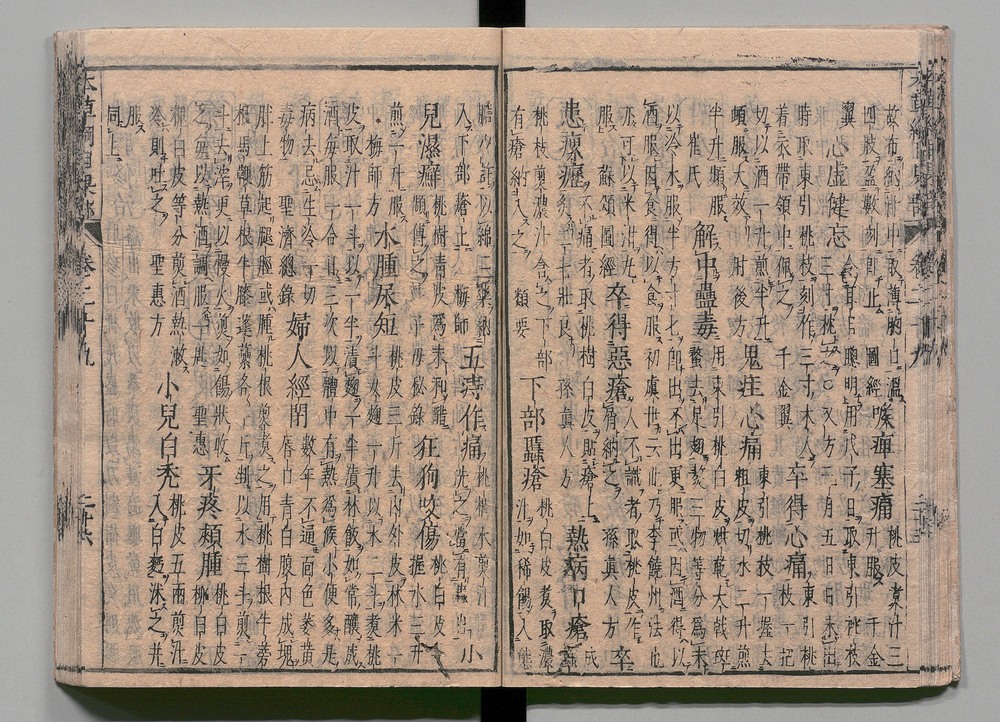 本草綱目果部 卷二十九
故布納汁中取薄胸口溫四肢盈數刻即止 圖經 喉痺塞痛 桃皮煮汁三升服 千金翼
心虛健忘 令耳目聰明用戊子日取東引桃枝二寸枕之○又方五月五日日未出時取東引桃枝刻作三寸木人着衣帶領中佩之 千金翼
卒得心痛 東引桃枝一把切以酒一升煎半升頓服大效 肘後方
鬼疰心痛 東引桃枝一握去粗皮切水二升煎半升頻服 崔氏
解中蠱毒 用東引桃白皮烘乾大戟斑蝥去足翅熬三物等分為末以冷水服半方寸匕即出不出更服或因酒得以酒服因食得以食服初虞世云此乃李饒州法也亦可以米泔丸服 蘇頌圖經
卒得惡瘡 人不識者取桃皮作屑納之 孫眞人方
卒患瘰癧 不痛者取桃樹白皮貼瘡上灸二七壯良 孫眞人方
熱病口瘡 成䘌桃枝煎濃汁含之下部有瘡納入之 類要
下部䘌瘡 桃白皮煮取濃汁如稀餳入熊
膽少許以綿蘸納入下部瘡上 梅師
五痔作痛 桃根水煎汁浸洗之當有蟲出
小兒濕癬 桃樹青皮為末和醋頻傅之 子母秘錄
狂狗咬傷 桃白皮一握水三升煎一升服 梅師方
水腫尿短 桃皮三斤去內外皮秫米一斗女麴一升以水二斗煮桃皮取汁一斗以一半漬麴一半漬秫飯如常釀成酒每服一合日三次以體中有熱為候小便多是病去忌生冷一切毒物 聖濟總錄
婦人經閉 數年不通面色萎黃唇口青白腹內成塊肚上筋起腿脛或腫桃根煎煮之用桃樹根牛蒡根馬鞭草根牛膝蓬虆各一斤剉以水三斗煎一斗去滓更以慢火煎如餳狀收之每以熱酒調服一匙 聖惠
牙疼頰腫 桃白皮柳白皮槐白皮等分煎酒熱漱冷則吐之 聖惠方
小兒白禿 桃皮五兩煎汁入白麪沐之并服 同上
本草綱目果部 卷二十九